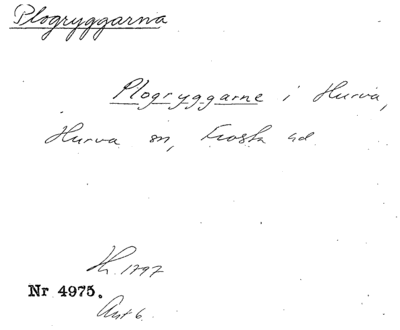 Plogryggarna
Plogryggarne i Hurva,
Hurva sn, Frosta hd.
Hz. 1797
Nr 4975.
Akt 6.